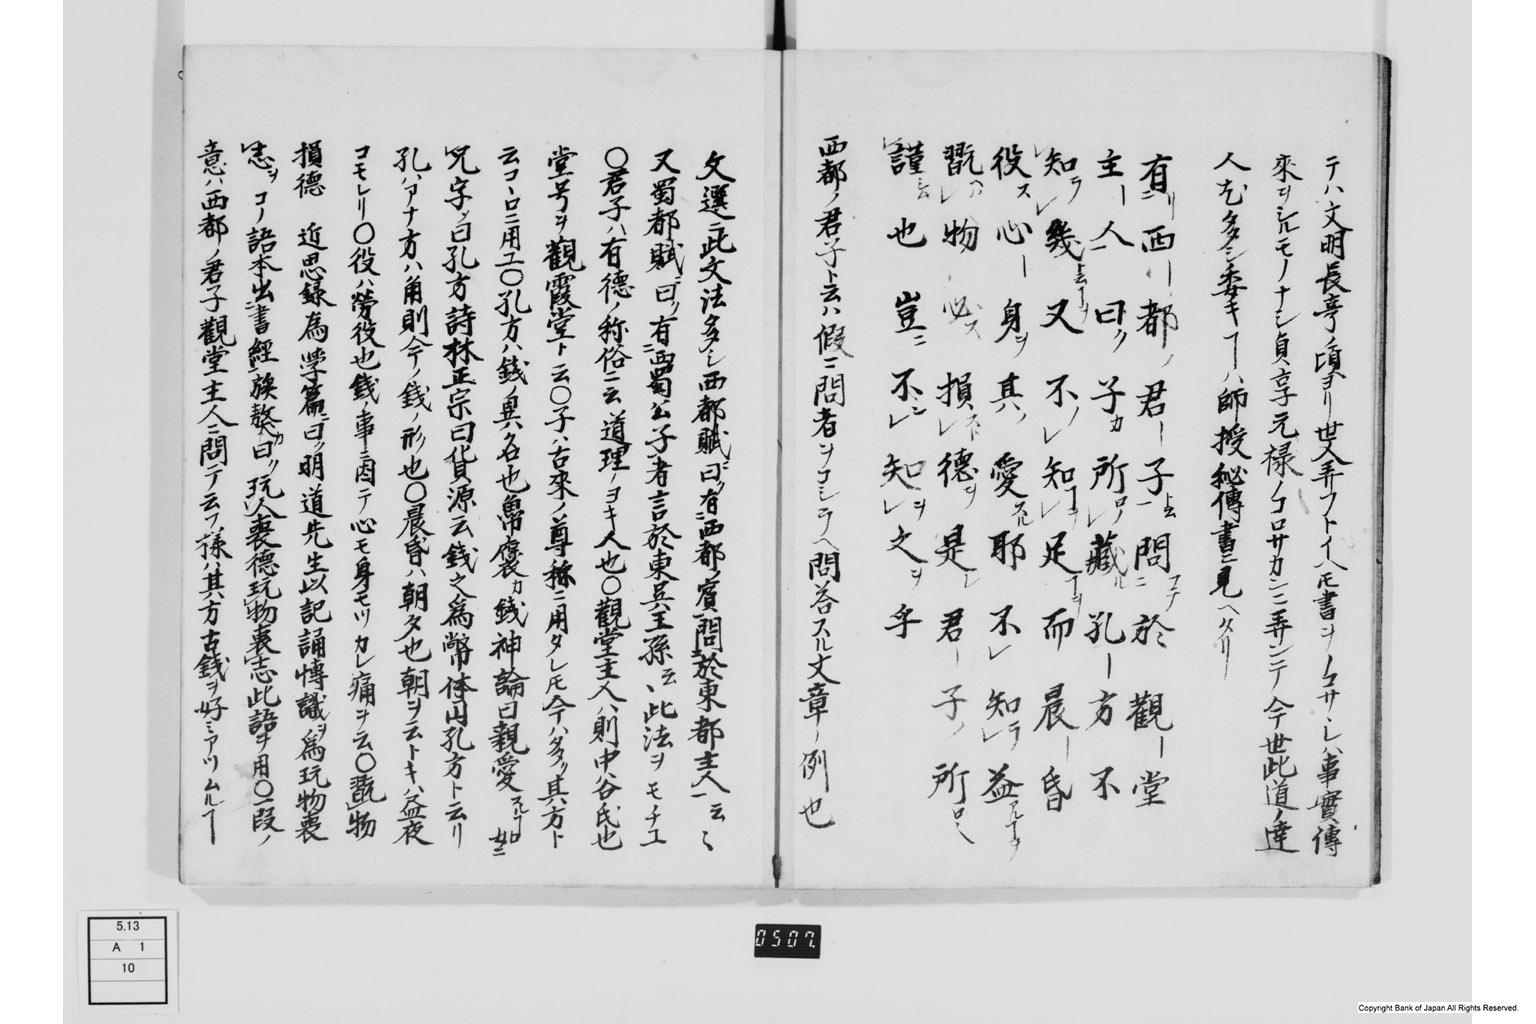 テハ文明長享ノ頃ヨリ世人弄フトイヘモ書ヲノコサレハ事實傳
來ヲシルモノナシ貞享元禄ノコロサカンニ弄ンテ今世此道ノ達
人尤多シ委キコハ師授秘傳書ニ見ヘタリ
有西都ノ君子問於觀堂
主人曰ク子カ所藏孔方不
知幾又不知足而晨昏
役心身ヲ其愛耶不知益
翫物必損德是君子ノ所
謹也豈不知之乎
西都ノ君子ト云ハ假ニ問者ヲコシラヘ問答スル文章ノ例也
文選ニ此文法多シ西都賦ニ曰ク有西都ノ賓問於東都主人云々
又蜀都賦ニ曰ク有西蜀公子者言於東呉王孫云々此法ヲモチユ
〇君子ハ有德ノ称俗ニ云道理ノヨキ人也〇觀堂主人ハ則中谷氏也
堂号ヲ觀霞堂ト云〇子ハ古來ノ尊称ニ用タレモ今ハタヽ其方ト
云コヽロニ用エ〇孔方ハ銭ノ異名也魯褒カ銭神論曰親愛スルコ如ニ
兄字ヲ曰孔方詩林正宗曰貨源云銭之為幣体円孔方ト云リ
孔ハアナ方ハ角則今ノ銭ノ形也〇晨昏ハ朝夕也朝ヲ云トキハ益夜
コモレリ〇役ハ勞役也銭ノ事ニ因テ心モ身モツカレ痛ヲ云〇翫物
損德 近思録為学篇ニ曰ク明道先生以記誦博識ヲ為玩物喪
志ヲコノ語本出書經旅獒曰ク玩人喪德玩物喪志此語ヲ用〇一段ノ
意ハ西都ノ君子觀堂主人ニ問テ云フ様ハ其方古銭ヲ好ミアツムルコ
5.13
A 1
10
0507.
Copyright Bank of Japan All Rights Reserved.